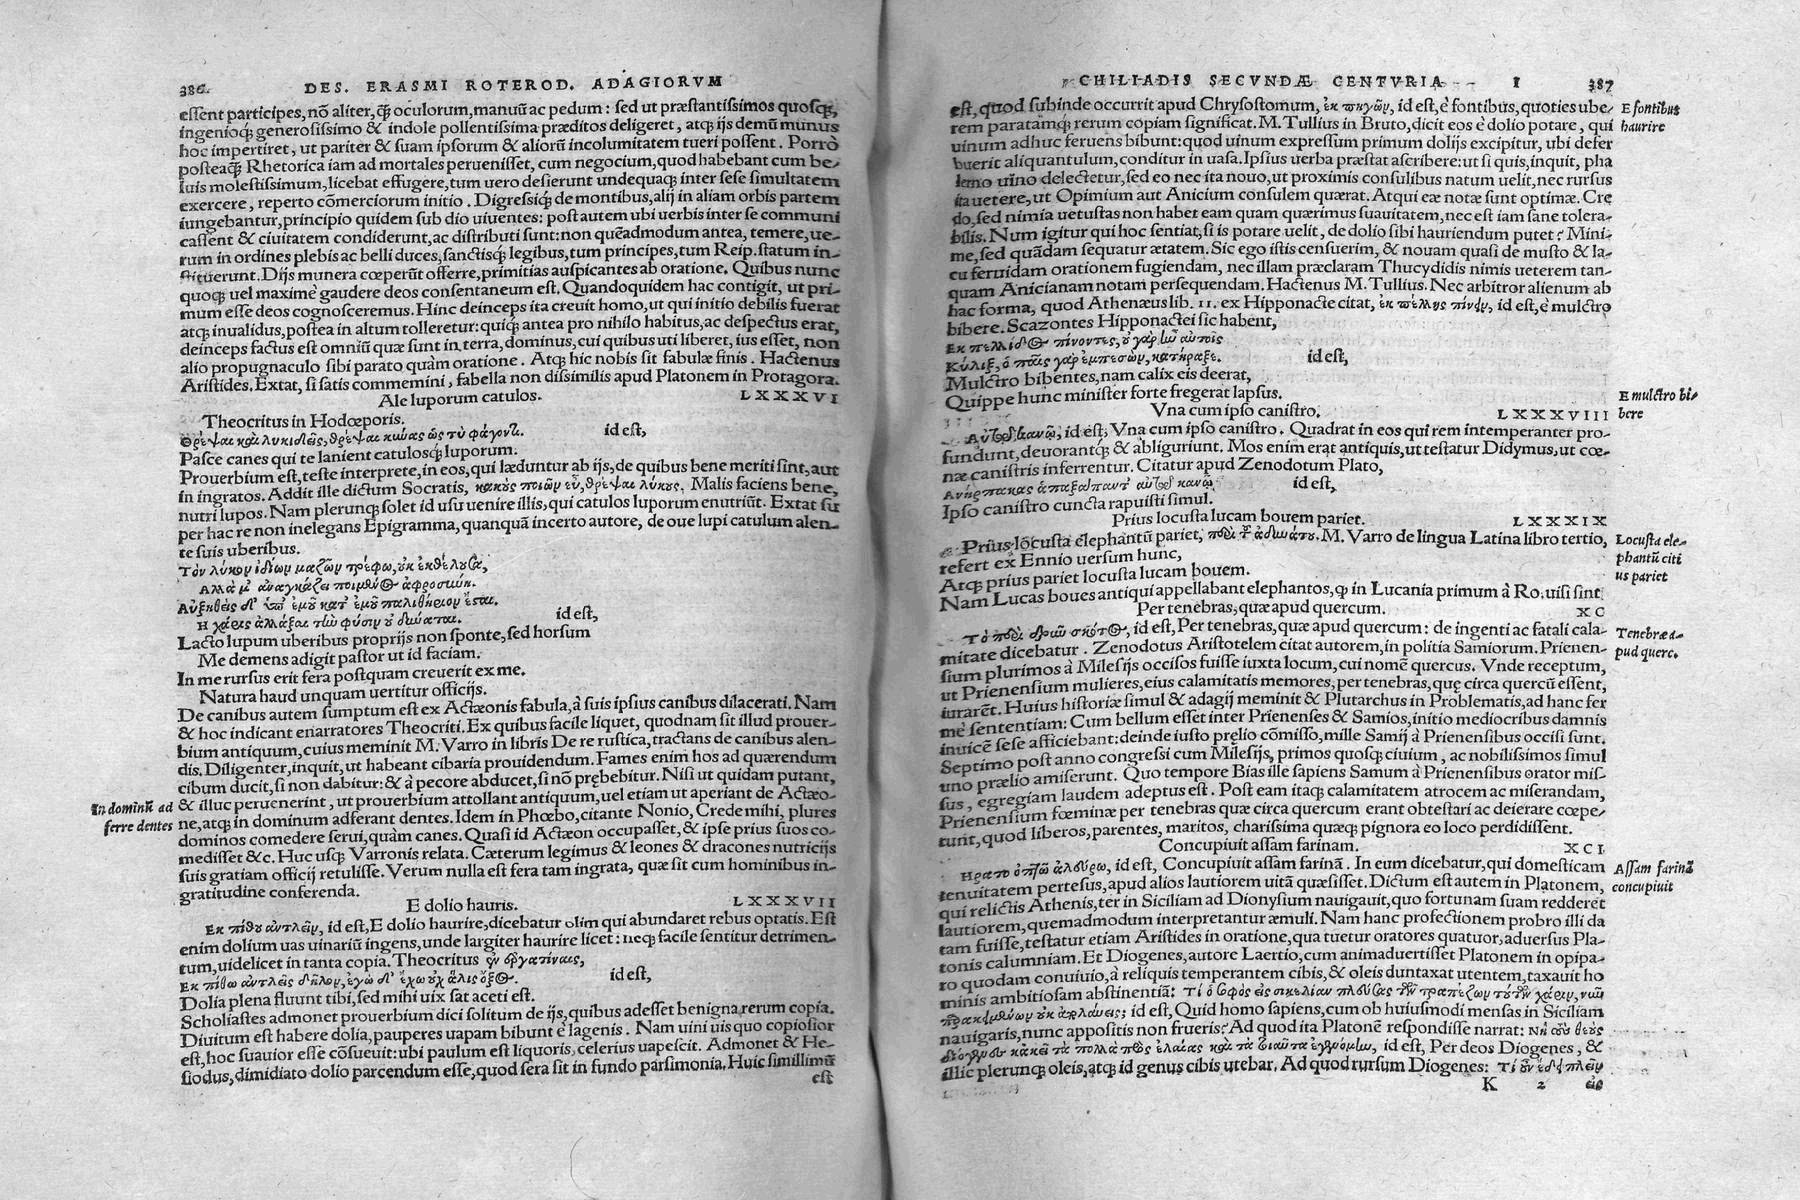 386 DES. ERASMI ROTEROD. ADAGIORVM
essent participes, nõ aliter, q̃ꝫ oculorum, manuũ ac pedum: sed ut præstantissimos quosqꝫ,
ingenioqꝫ generosissimo & indole pollentissima præditos deligeret, atqꝫ ijs demũ munus
hoc impertiret, ut pariter & suam ipsorum & aliorũ incolumitatem tueri possent. Porrò
posteaq̃ꝫ Rhetorica iam ad mortales peruenisset, cum negocium, quod habebant cum be-
luis molestissimum, licebat effugere, tum uero desierunt undequaqꝫ inter sese simultatem
exercere, reperto cõmerciorum initio. Digressiqꝫ de montibus, alij in aliam orbis partem
iungebantur, principio quidem sub dio uiuentes: post autem ubi uerbis inter se communi
cassent & ciuitatem condiderunt, ac distributi sunt: non quẽadmodum antea, temere, ue-
rum in ordines plebis ac belli duces, sanctisqꝫ legibus, tum principes, tum Reip. statum in-
stituerunt. Dijs munera cœperũt offerre, primitias auspicantes ab oratione. Quibus nunc
quoqꝫ uel maximè gaudere deos consentaneum est. Quandoquidem hac contigit, ut pri-
mum esse deos cognosceremus. Hinc deinceps ita creuit homo, ut qui initio debilis fuerat
atqꝫ inualidus, postea in altum tolleretur: quiqꝫ antea pro nihilo habitus, ac despectus erat,
deinceps factus est omniũ quæ sunt in terra, dominus, cui quibus uti liberet, ius esset, non
alio propugnaculo sibi parato quàm oratione. Atqꝫ hic nobis sit fabulæ finis. Hactenus
Aristides. Extat, si satis commemini, fabella non dissimilis apud Platonem in Protagora.
Ale luporum catulos. LXXXVI
Theocritus in Hodœporis.
Θρέψαι καὶ λυκιδεῖς, θρέψαι κύνας ὥς τὺ φάγοντι. id est,
Pasce canes qui te lanient catulosqꝫ luporum.
Prouerbium est, teste interprete, in eos, qui læduntur ab ijs, de quibus bene meriti sint, aut
in ingratos. Addit ille dictum Socratis, κακὸς ποιῶν εὖ, θρέψαι λύκους. Malis faciens bene,
nutri lupos. Nam plerunqꝫ solet id usu uenire illis, qui catulos luporum enutriũt. Extat su
per hac re non inelegans Epigramma, quanquã incerto autore, de oue lupi catulum alen-
te suis uberibus.
Τὸν λύκον ἰδίων μαζῶν τρέφω, οὐκ ἐκθέλουσα,
Ἀλλά μ' ἀναγκάζει ποιμένος ἀφροσύνη.
Αὐξηθεὶς δ' ὑπ' ἐμοῦ κατ' ἐμοῦ πάλι θηρίον ἔσται.
Ἡ χάρις ἀλλάξαι τὴν φύσιν οὐ δύναται. id est,
Lacto lupum uberibus proprijs non sponte, sed horsum
Me demens adigit pastor ut id faciam.
In me rursus erit fera postquam creuerit ex me.
Natura haud unquam uertitur officijs.
De canibus autem sumptum est ex Actæonis fabula, à suis ipsius canibus dilacerati. Nam
& hoc indicant enarratores Theocriti. Ex quibus facile liquet, quodnam sit illud prouer-
bium antiquum, cuius meminit M. Varro in libris De re rustica, tractans de canibus alen-
dis. Diligenter, inquit, ut habeant cibaria prouidendum. Fames enim hos ad quærendum
cibum ducit, si non dabitur: & à pecore abducet, si nõ prębebitur. Nisi ut quidam putant,
In dominũ ad & illuc peruenerint, ut prouerbium attollant antiquum, uel etiam ut aperiant de Actæo-
ferre dentes ne, atqꝫ in dominum adferant dentes. Idem in Phœbo, citante Nonio, Crede mihi, plures
dominos comedere serui, quàm canes. Quasi id Actæon occupasset, & ipse prius suos co-
medisset &c. Huc usqꝫ Varronis relata. Cæterum legimus & leones & dracones nutricijs
suis gratiam officij retulisse. Verum nulla est fera tam ingrata, quæ sit cum hominibus in-
gratitudine conferenda.
E dolio hauris. LXXXVII
Ἐκ πίθου ἀντλεῖν, id est, E dolio haurire, dicebatur olim qui abundaret rebus optatis. Est
enim dolium uas uinariũ ingens, unde largiter haurire licet: neqꝫ facile sentitur detrimen-
tum, uidelicet in tanta copia. Theocritus ἐν ἐργατίναις,
Ἐκ πίθω ἀντλεῖς δῆλον, ἐγὼ δ' ἔχω οὐχ ἅλις ὄξος. id est,
Dolia plena fluunt tibi, sed mihi uix sat aceti est.
Scholiastes admonet prouerbium dici solitum de ijs, quibus adesset benigna rerum copia.
Diuitum est habere dolia, pauperes uapam bibunt è lagenis. Nam uini uis quo copiosior
est, hoc suauior esse cõsueuit: ubi paulum est liquoris, celerius uapescit. Admonet & He-
siodus, dimidiato dolio parcendum esse, quod sera sit in fundo parsimonia. Huic simillimũ
est
CHILIADIS SECVNDÆ CENTVRIA I 387
est, quod subinde occurrit apud Chrysostomum, ἐκ πηγῶν, id est, è fontibus, quoties ube- E fontibus
rem paratamqꝫ rerum copiam significat. M. Tullius in Bruto, dicit eos è dolio potare, qui haurire
uinum adhuc feruens bibunt: quod uinum expressum primum dolijs excipitur, ubi defer
buerit aliquantulum, conditur in uasa. Ipsius uerba præstat ascribere: ut si quis, inquit, pha
lerno uino delectetur, sed eo nec ita nouo, ut proximis consulibus natum uelit, nec rursus
ita uetere, ut Opimium aut Anicium consulem quærat. Atqui eæ notæ sunt optimæ. Cre
do, sed nimia uetustas non habet eam quam quærimus suauitatem, nec est iam sane tolera-
bilis. Num igitur qui hoc sentiat, si is potare uelit, de dolio sibi hauriendum putet? Mini-
me, sed quãdam sequatur ætatem. Sic ego istis censuerim, & nouam quasi de musto & la-
cu feruidam orationem fugiendam, nec illam præclaram Thucydidis nimis ueterem tan-
quam Anicianam notam persequendam. Hactenus M. Tullius. Nec arbitror alienum ab
hac forma, quod Athenæus lib. 11. ex Hipponacte citat, ἐκ πέλλης πίνειν, id est, è mulctro
bibere. Scazontes Hipponactei sic habent,
Ἐκ πελλίδος πίνοντες, οὐ γὰρ ἦν αὐτοῖς
Κύλιξ, ὁ παῖς γὰρ ἐμπεσὼν, κατήραξε. id est,
Mulctro bibentes, nam calix eis deerat,
Quippe hunc minister forte fregerat lapsus. E mulctro bi-
Vna cum ipso canistro. LXXXVIII bere
Αὐτῷ κανῷ, id est, Vna cum ipso canistro. Quadrat in eos qui rem intemperanter pro-
fundunt, deuorantqꝫ & abliguriunt. Mos enim erat antiquis, ut testatur Didymus, ut cœ-
næ canistris inferrentur. Citatur apud Zenodotum Plato,
id est,
Ipso canistro cuncta rapuisti simul.
Prius locusta lucam bouem pariet. LXXXIX
Prius locusta elephantũ pariet, M. Varro de lingua Latina libro tertio, Locusta ele-
refert ex Ennio uersum hunc, phantũ citi
Atqꝫ prius pariet locusta lucam bouem. us pariet
Nam Lucas boues antiqui appellabant elephantos, ꝙ in Lucania primum à Ro. uisi sint.
Per tenebras, quæ apud quercum. XC
Τὸ παρὰ δρυῒ σκότος, id est, Per tenebras, quæ apud quercum: de ingenti ac fatali cala- Tenebræ a-
mitate dicebatur. Zenodotus Aristotelem citat autorem, in politia Samiorum. Prienen- pud querc.
sium plurimos à Milesijs occisos fuisse iuxta locum, cui nomẽ quercus. Vnde receptum,
ut Prienensium mulieres, eius calamitatis memores, per tenebras, quę circa quercũ essent,
iurarẽt. Huius historiæ simul & adagij meminit & Plutarchus in Problematis, ad hanc fer
mè sententiam: Cum bellum esset inter Prienenses & Samios, initio mediocribus damnis
inuicẽ sese afficiebant: deinde iusto prelio cõmisso, mille Samij à Prienensibus occisi sunt.
Septimo post anno congressi cum Milesijs, primos quosqꝫ ciuium, ac nobilissimos simul
uno prælio amiserunt. Quo tempore Bias ille sapiens Samum à Prienensibus orator mis-
sus, egregiam laudem adeptus est. Post eam itaqꝫ calamitatem atrocem ac miserandam,
Prienensium fœminæ per tenebras quæ circa quercum erant obtestari ac deierare cœpe-
runt, quod liberos, parentes, maritos, charissima quæqꝫ pignora eo loco perdidissent.
Concupiuit assam farinam. XCI
Ἠράτο ὀπτῶν ἀλεύρων, id est, Concupiuit assam farinã. In eum dicebatur, qui domesticam Assam farinã
tenuitatem pertesus, apud alios lautiorem uitã quæsisset. Dictum est autem in Platonem, concupiuit
qui relictis Athenis, ter in Siciliam ad Dionysium nauigauit, quo fortunam suam redderet
lautiorem, quemadmodum interpretantur æmuli. Nam hanc profectionem probro illi da
tam fuisse, testatur etiam Aristides in oratione, qua tuetur oratores quatuor, aduersus Pla-
tonis calumniam. Et Diogenes, autore Laertio, cum animaduertisset Platonem in opipa-
ro quodam conuiuio, à reliquis temperantem cibis, & oleis duntaxat utentem, taxauit ho
minis ambitiosam abstinentiã: Τί ὁ σοφὸς εἰς σικελίαν πλεύσας τῶν τραπεζῶν τούτων χάριν, νῦν
παρακειμένων οὐκ ἀπολαύεις; id est, Quid homo sapiens, cum ob huiusmodi mensas in Siciliam
nauigaris, nunc appositis non frueris? Ad quod ita Platonẽ respondisse narrat: Νὴ τοὺς θεοὺς
Διόγενες κἀκεῖ τὰ πολλὰ πρὸς ἐλαίας καὶ τὰ τοιαῦτα ἐγενόμην, id est, Per deos Diogenes, &
illic plerunqꝫ oleis, atqꝫ id genus cibis utebar. Ad quod rursum Diogenes: Τί οὖν ἔδει πλεῖν
K 2 εἰς